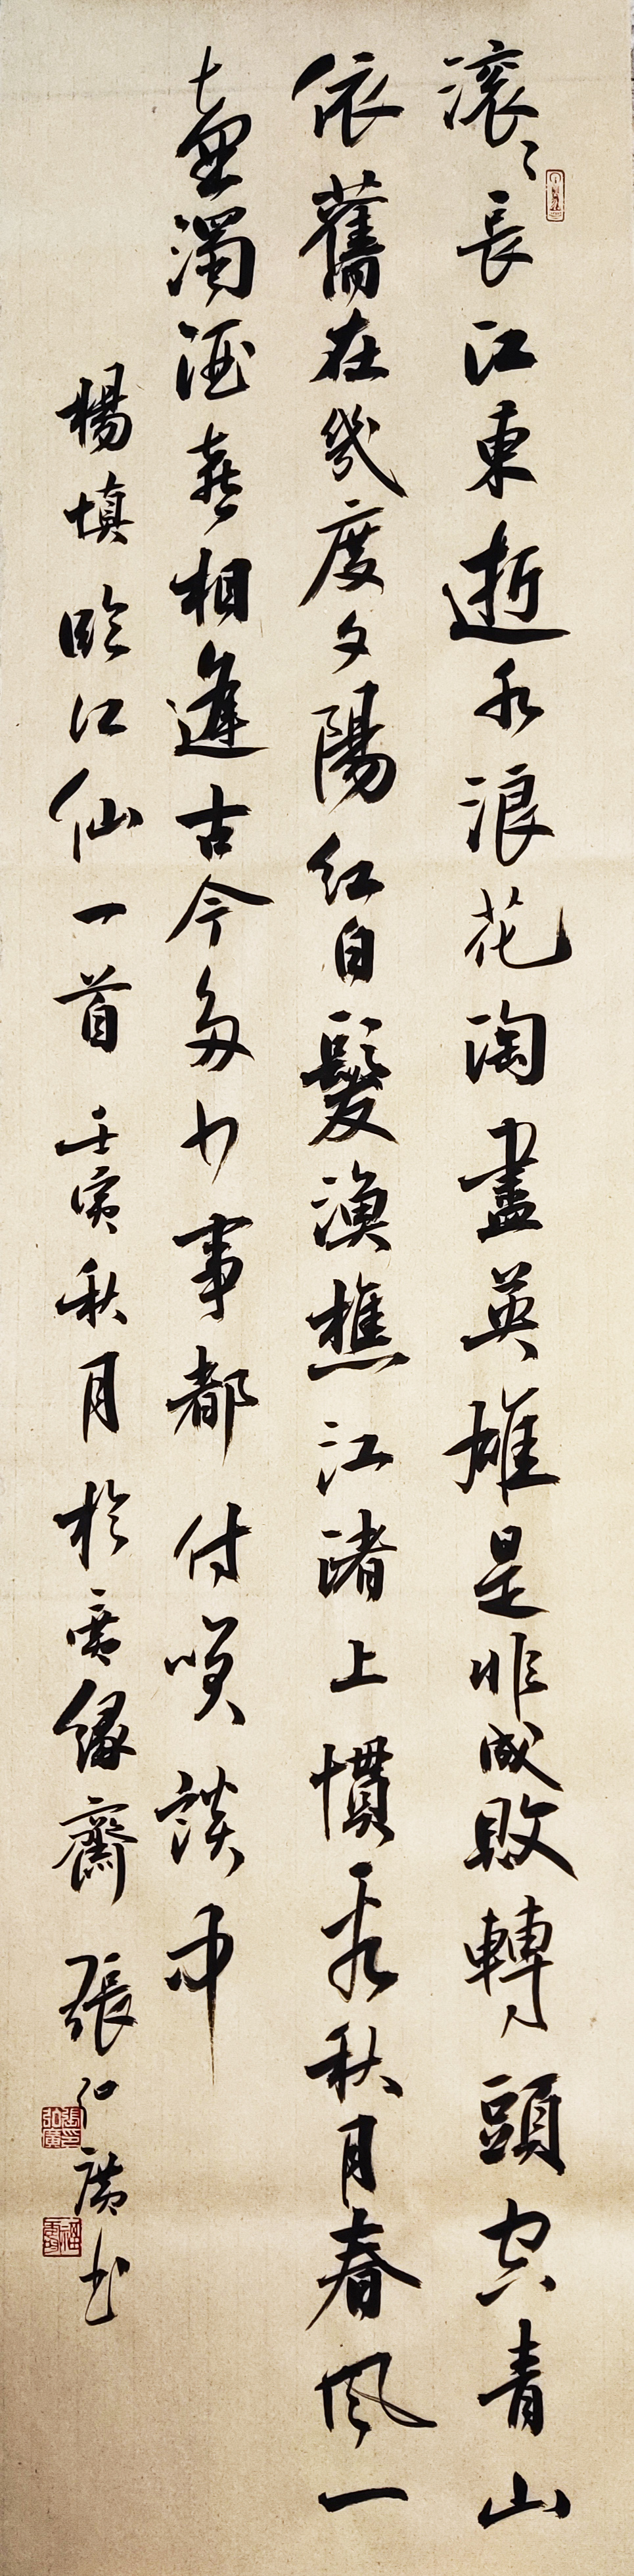 滚〻長江東逝水浪花淘盡英雄是非成敗轉頭空青山
依舊在幾度夕陽紅白髮漁樵江渚上慣看秋月春風一
壺濁酒喜相逢古今多少事都付笑談中
楊慎臨江仙一首 壬寅秋月於雲緣齋 張弘廣书